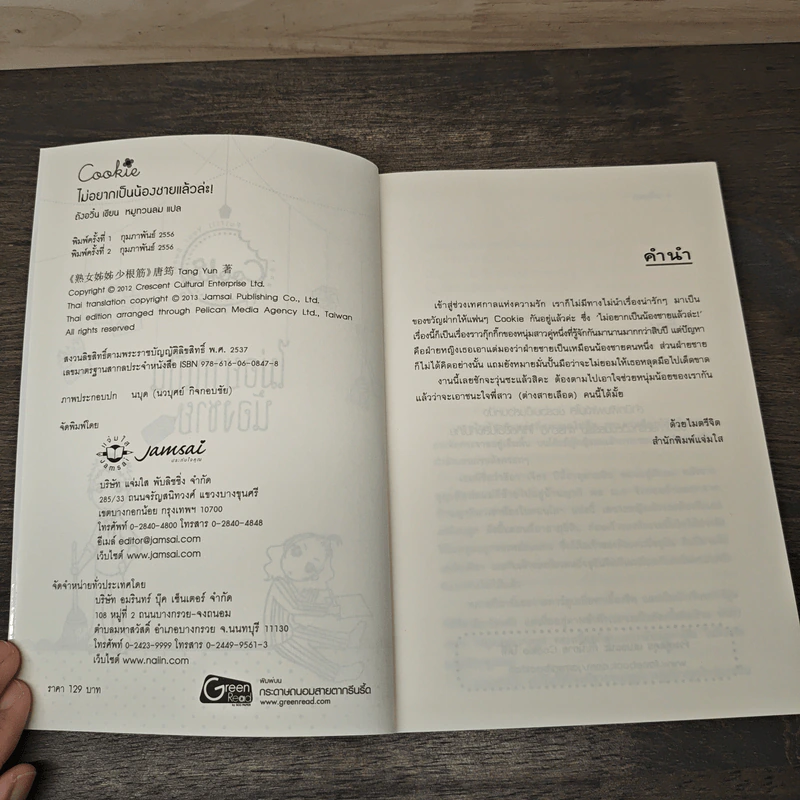 Cookie
ไม่อยากเป็นน้องชายแล้วล่ะ!
ถังอวิ๋น เขียน หมูทวนลม แปล
พิมพ์ครั้งที่ 1 กุมภาพันธ์ 2556
พิมพ์ครั้งที่ 2 กุมภาพันธ์ 2556
《熟女姊姊少根筋》唐筠 Tang Yun 著
Copyright © 2012 Crescent Cultural Enterprise Ltd.
Thai translation copyright © 2013 Jamsai Publishing Co., Ltd.
Thai edition arranged through Pelican Media Agency Ltd., Taiwan
All rights reserved
สงวนลิขสิทธิ์ตามพระราชบัญญัติลิขสิทธิ์ พ.ศ. 2537
เลขมาตรฐานสากลประจำหนังสือ ISBN 978-616-06-0847-8
ภาพประกอบปก นบุค (นวบุศย์ กิจกอบชัย)
จัดพิมพ์โดย
แจ่มใส
JAMSAI
Jamsai
ประทับใจคุณ
บริษัท แจ่มใส พับลิชชิ่ง จำกัด
285/33 ถนนจรัญสนิทวงศ์ แขวงบางขุนศรี
เขตบางกอกน้อย กรุงเทพฯ 10700
โทรศัพท์ 0-2840-4800 โทรสาร 0-2840-4848
อีเมล์ editor@jamsai.com
เว็บไซต์ www.jamsai.com
จัดจำหน่ายทั่วประเทศโดย
บริษัท อมรินทร์ บุ๊ค เซ็นเตอร์ จำกัด
108 หมู่ที่ 2 ถนนบางกรวย-จงถนอม
ตำบลมหาสวัสดิ์ อำเภอบางกรวย จ.นนทบุรี 11130
โทรศัพท์ 0-2423-9999 โทรสาร 0-2449-9561-3
เว็บไซต์ www.naiin.com
ราคา 129 บาท
Green
Read
พิมพ์บน
กระดาษถนอมสายตากรีนรี้ด
www.greenread.com
คำนำ
เข้าสู่ช่วงเทศกาลแห่งความรัก เราก็ไม่มีทางไม่นำเรื่องน่ารักๆ มาเป็น
ของขวัญฝากให้แฟนๆ Cookie กันอยู่แล้วค่ะ ซึ่ง 'ไม่อยากเป็นน้องชายแล้วล่ะ!'
เรื่องนี้ก็เป็นเรื่องราวกุ๊กกิ๊กของหนุ่มสาวคู่หนึ่งที่รู้จักกันมานานมากกว่าสิบปี แต่ปัญหา
คือฝ่ายหญิงเธอเอาแต่มองว่าฝ่ายชายเป็นเหมือนน้องชายคนหนึ่ง ส่วนฝ่ายชาย
ก็ไม่ได้คิดอย่างนั้น แถมยังหมายมั่นปั้นมือว่าจะไม่ยอมให้เธอหลุดมือไปเด็ดขาด
งานนี้เลยชักจะวุ่นซะแล้วสิคะ ต้องตามไปเอาใจช่วยหนุ่มน้อยของเรากัน
แล้วว่าจะเอาชนะใจพี่สาว (ต่างสายเลือด) คนนี้ได้มั้ย
ด้วยไมตรีจิต
สำนักพิมพ์แจ่มใส